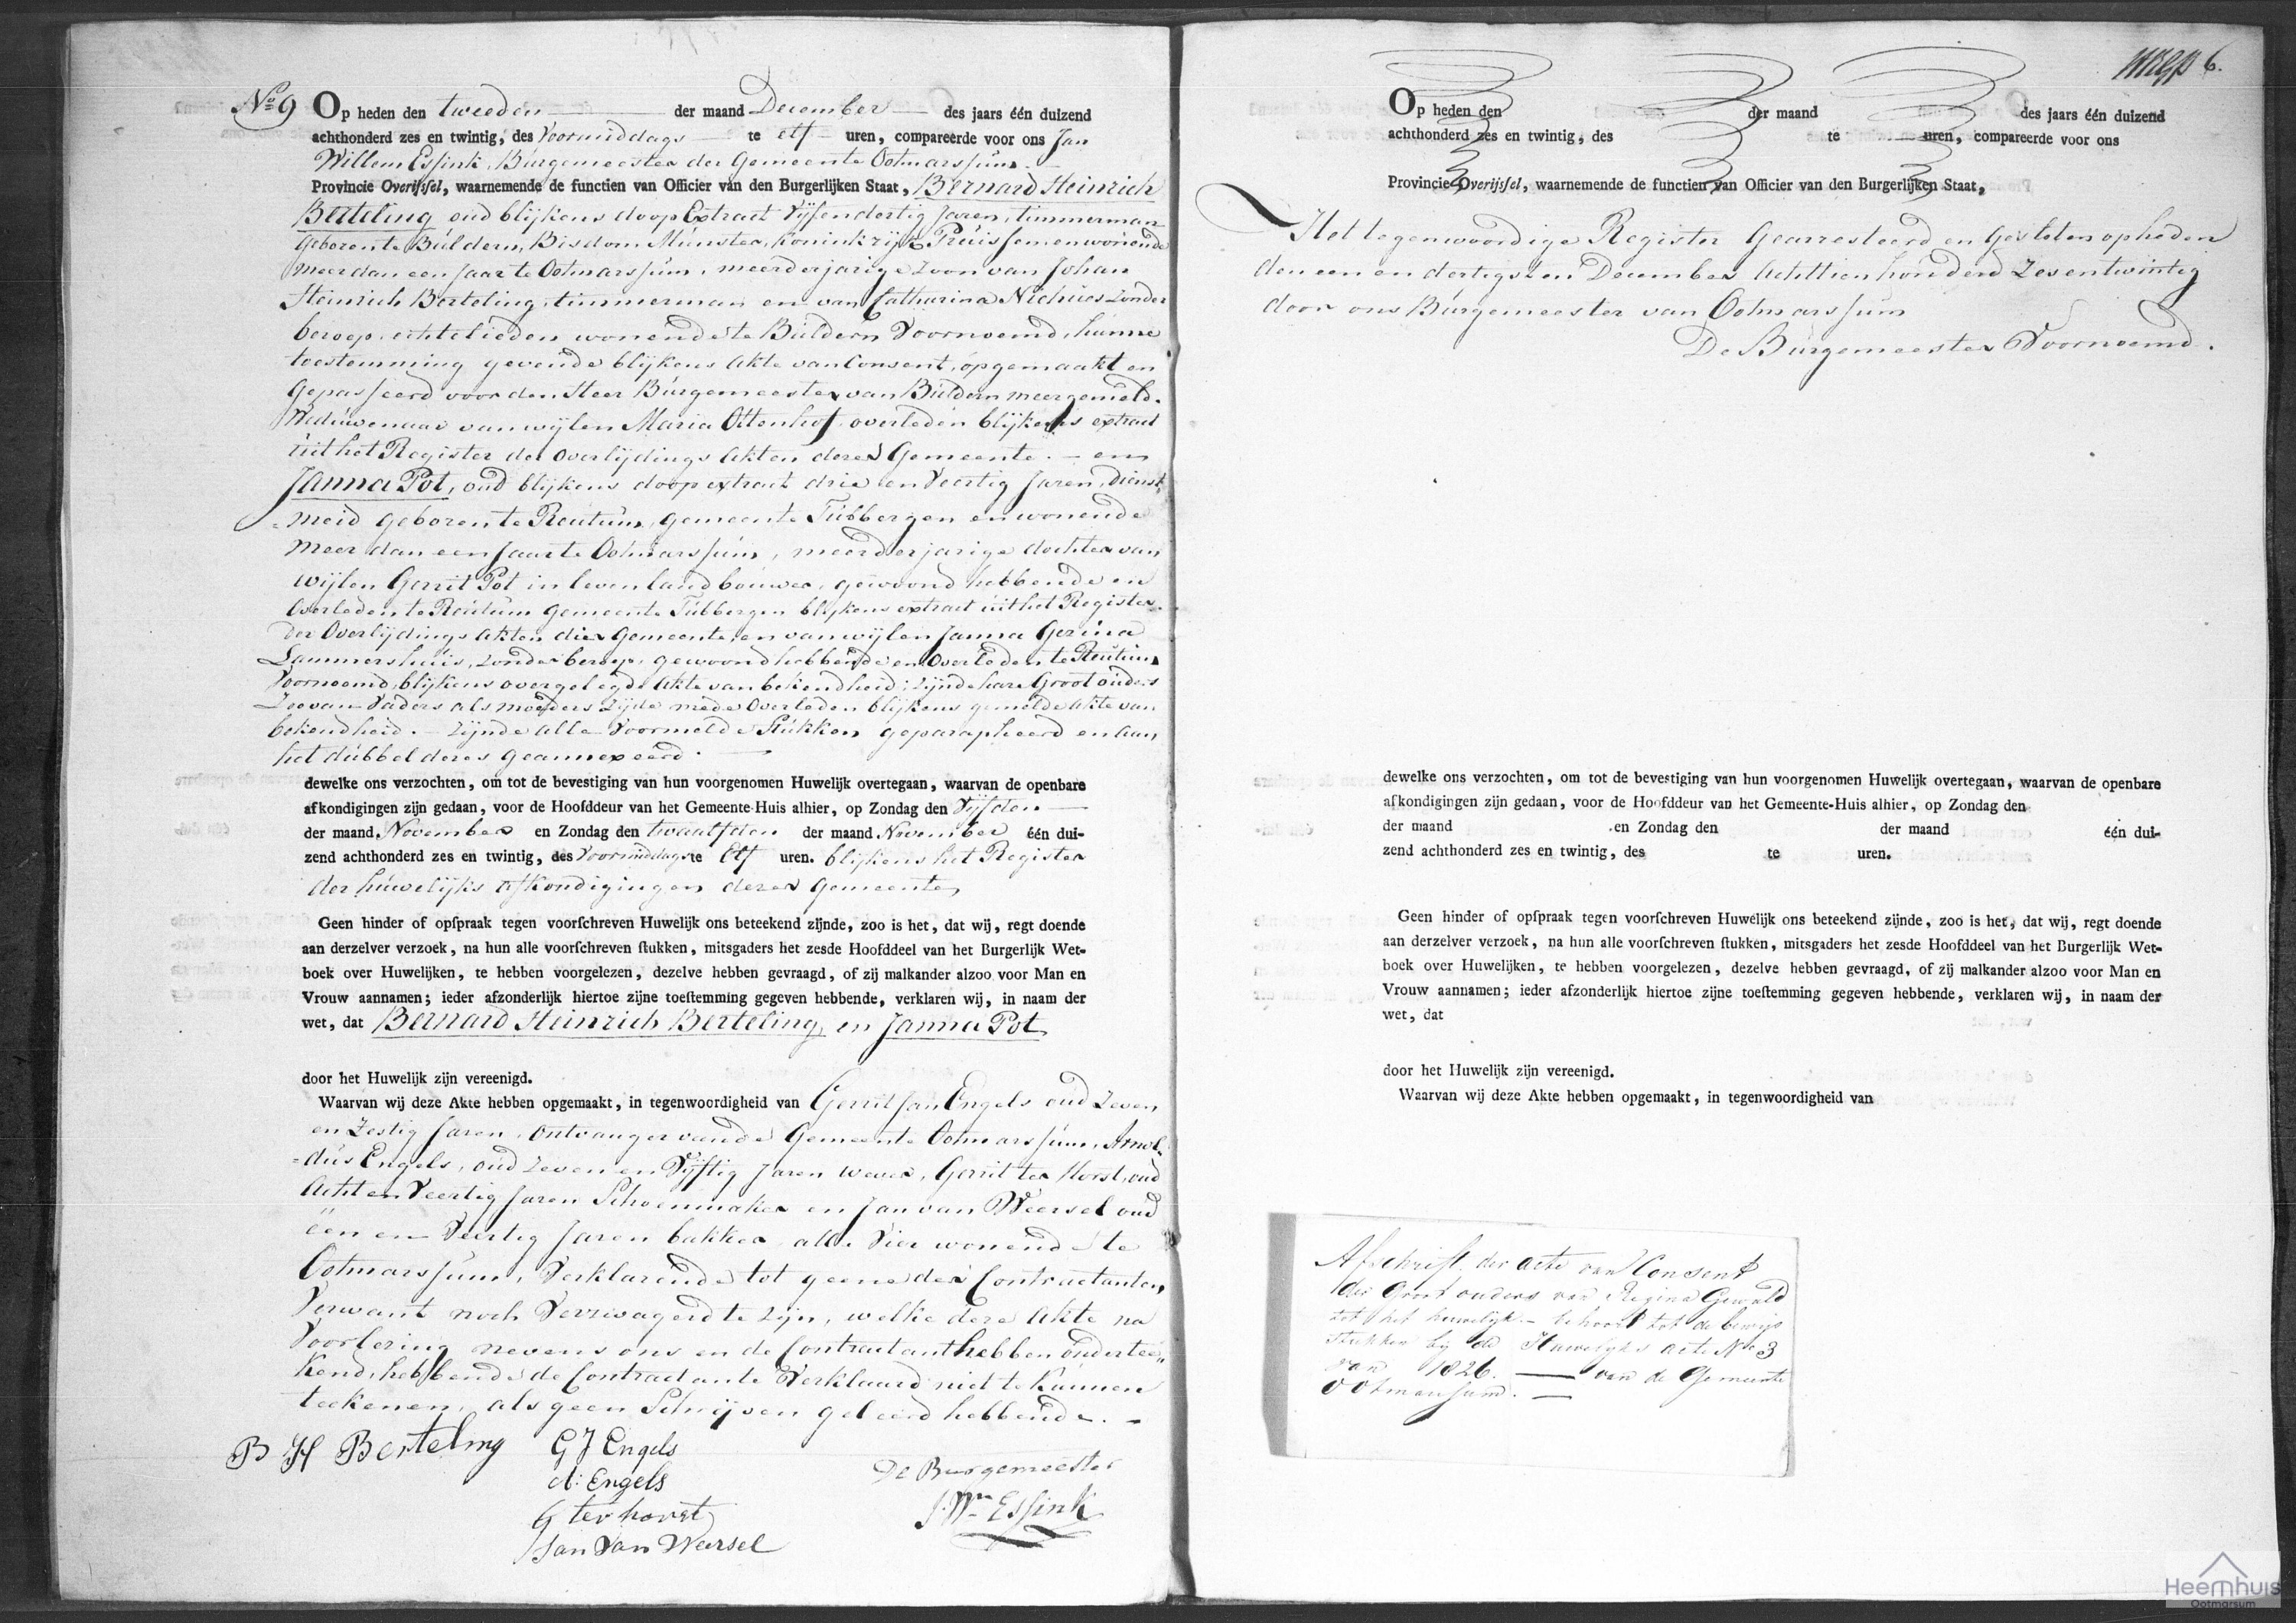 No 9 Op heden den tweeden der maand December des jaars één duizend
achthonderd zes en twintig, des Voormiddags te elf uren, compareerde voor ons Jan
Willem Essink, Burgemeester der Gemeente Ootmarssum
Provincie Overijssel, waarnemende de functien van Officier van den Burgerlijken Staat, Bernard Heinrich
Berteling oud blijkens doop Extract Vijfendertig Jaren, timmerman
Geboren te Buldern, Bisdom Munster, Koninkrijk Pruissen en wonende
meer dan een jaar te Ootmarssum, meerderjarige Zoon van Johan
Heinrich Berteling, timmerman en van Catharina Niehues zonder
beroep, echtelieden wonende te Buldern Voornoemd, hunne
toestemming gevende blijkens Akte van Consent, opgemaakt en
Gepasseerd voor den Heer Burgemeester van Buldern meergemeld.
Weduwenaar van wijlen Maria Ottenhof overleden blijkens extract
uit het Register der Overlijdings Akten dezer Gemeente. – en
Janna Pot, oud blijkens doop extract drie en Veertig Jaren, dienst
meid geboren te Reutum, Gemeente Tubbergen en wonende
meer dan een Jaar te Ootmarssum, meerderjarige dochter van
wijlen Gerrit Pot in leven landbouwer, gewoond hebbende en
Overleden te Reutum Gemeente Tubbergen blijkens extract uit het Register
der Overlijdings Akten dier Gemeente, en van wijlen Janna Gerina
Lammershuis, zonder beroep, gewoond hebbende en Overleden te Reutum
Voornoemd, blijkens overgelegde Akte van bekendheid; zijnde hare Groot ouders
Zoo van Vaders als moeders Zijde mede Overleden blijkens gemelde Akte van
bekendheid. – Zijnde alle Voormelde Stukken geparapheerd en aan
het dubbel dezes geannexeerd.
dewelke ons verzochten, om tot de bevestiging van hun voorgenomen Huwelijk overtegaan, waarvan de openbare
afkondigingen zijn gedaan, voor de Hoofddeur van het Gemeente-Huis alhier, op Zondag den Vijfden
der maand November en Zondag den twaalfden der maand November één dui-
zend achthonderd zes en twintig, des Voormiddags te Elf uren. blijkens het Register
der huwelijks afkondigingen dezer Gemeente
Geen hinder of opspraak tegen voorschreven Huwelijk ons beteekend zijnde, zoo is het, dat wij, regt doende
aan derzelver verzoek, na hun alle voorschreven stukken, mitsgaders het zesde Hoofddeel van het Burgerlijk Wet-
boek over Huwelijken, te hebben voorgelezen, dezelve hebben gevraagd, of zij malkander alzoo voor Man en
Vrouw aannamen; ieder afzonderlijk hiertoe zijne toestemming gegeven hebbende, verklaren wij, in naam der
wet, dat Bernard Heinrich Berteling en Janna Pot
door het Huwelijk zijn vereenigd.
Waarvan wij deze Akte hebben opgemaakt, in tegenwoordigheid van Gerrit Jan Engels oud Zeven
en Zestig Jaren, Ontvanger van de Gemeente Ootmarssum, Arnol-
=dus Engels, oud Zeven en Vijftig Jaren wever, Gerrit ter Horst, oud
Acht en Veertig Jaren Schoenmaker en Jan van Weersel oud
één en Veertig Jaren bakker, alle Vier wonende te
Ootmarssum, Verklarende tot geene der Contractanten
Verwant noch Verzwagerd te zijn, welke deze Akte na
Voorlezing nevens ons en de Contractant hebben ondertee„
kend, hebbende de Contractante Verklaard niet te kunnen
teekenen, als geen Schrijven geleerd hebbende. –
B H Berteling
G J Engels
A: Engels
G ter horst
Jan Van Weersel
De Burgemeester
J. Wm Essink
6.
Op heden den der maand des jaars één duizend
achthonderd zes en twintig, des te uren, compareerde voor ons
Provincie Overijssel, waarnemende de functien van Officier van den Burgerlijken Staat,
Het tegenwoordige Register Gearresteerd en Gesloten op heden
den een en dertigsten December Achttien honderd Zes en twintig
door ons Burgemeester van Ootmarssum
De Burgemeester Voornoemd.
dewelke ons verzochten, om tot de bevestiging van hun voorgenomen Huwelijk overtegaan, waarvan de openbare
afkondigingen zijn gedaan, voor de Hoofddeur van het Gemeente-Huis alhier, op Zondag den
der maand en Zondag den der maand één dui-
zend achthonderd zes en twintig, des te uren.
Geen hinder of opspraak tegen voorschreven Huwelijk ons beteekend zijnde, zoo is het, dat wij, regt doende
aan derzelver verzoek, na hun alle voorschreven stukken, mitsgaders het zesde Hoofddeel van het Burgerlijk Wet-
boek over Huwelijken, te hebben voorgelezen, dezelve hebben gevraagd, of zij malkander alzoo voor Man en
Vrouw aannamen; ieder afzonderlijk hiertoe zijne toestemming gegeven hebbende, verklaren wij, in naam der
wet, dat
door het Huwelijk zijn vereenigd.
Waarvan wij deze Akte hebben opgemaakt, in tegenwoordigheid van
Afschrift der acte van Consent
der Groot ouders van Regina Gewald
tot het huwelijk. – behoort tot de bewijs
stukken bij de Huwelijks acte No 3
van 1826. — van de Gemeente
Ootmarssum. —
Heemhuis
Ootmarsum